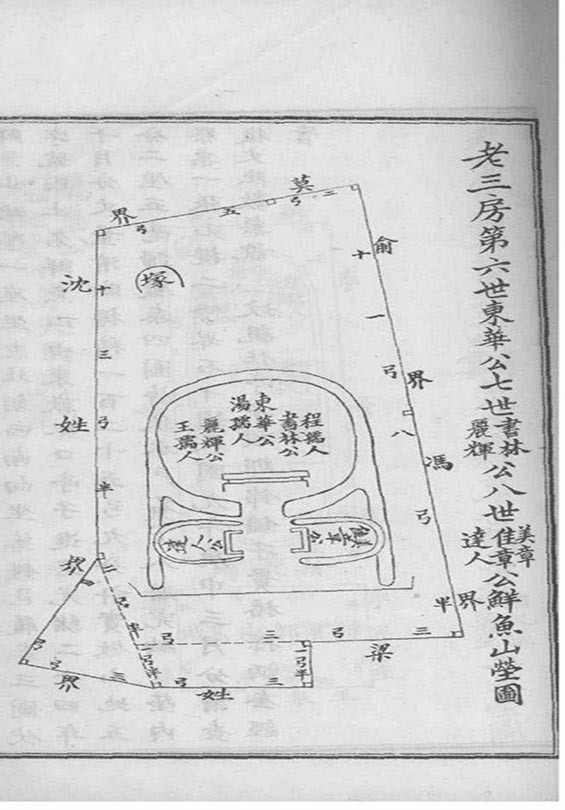 老三房第六世東華公七世書林麗輝公八世美章佳章達人公鮮魚山塋圖
界
弓
五
莫
弓
三
俞
十
一
弓
界
八
馮
弓
半
界
沈
十
三
弓
姓
半
塚
程孺人
書林公
東華公
湯孺人
麗輝公
王孺人
達人公
二
弓
半
弓
三
弓
三
梁
一弓半
一弓半
弓
三
姓
弓
弓
界
三